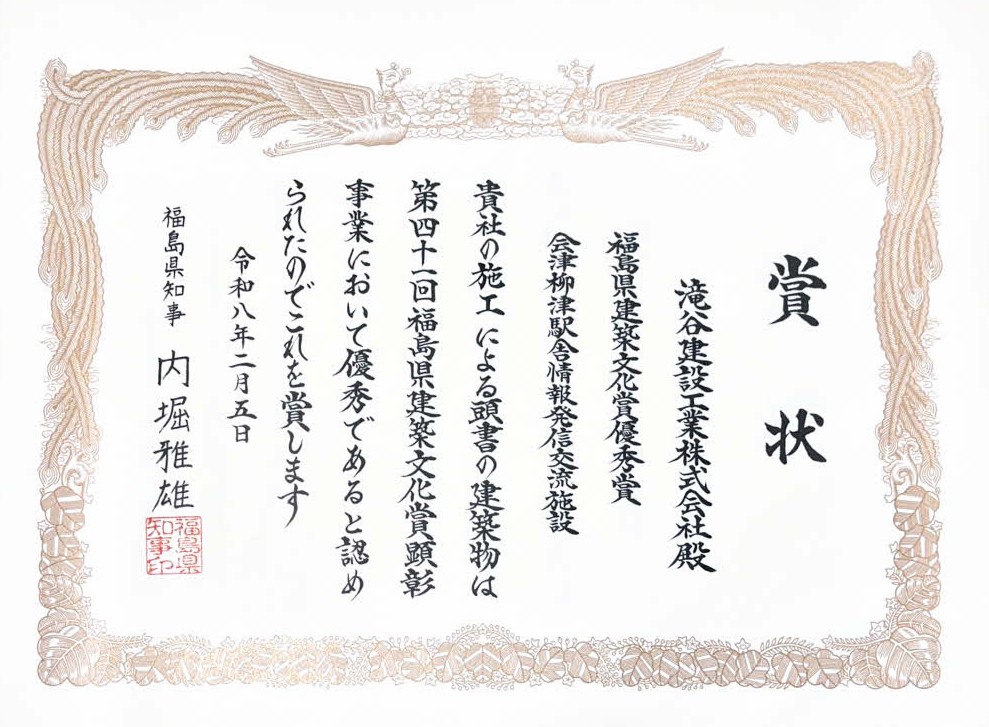 賞状
滝谷建設工業株式会社殿
福島県建築文化賞優秀賞
会津柳津駅舎情報発信交流施設
貴社の施工による頭書の建築物は
第四十一回福島県建築文化賞顕彰
事業において優秀であると認め
られたのでこれを賞します
令和八年二月五日
福島県知事 内堀雅雄
福島県
知事印